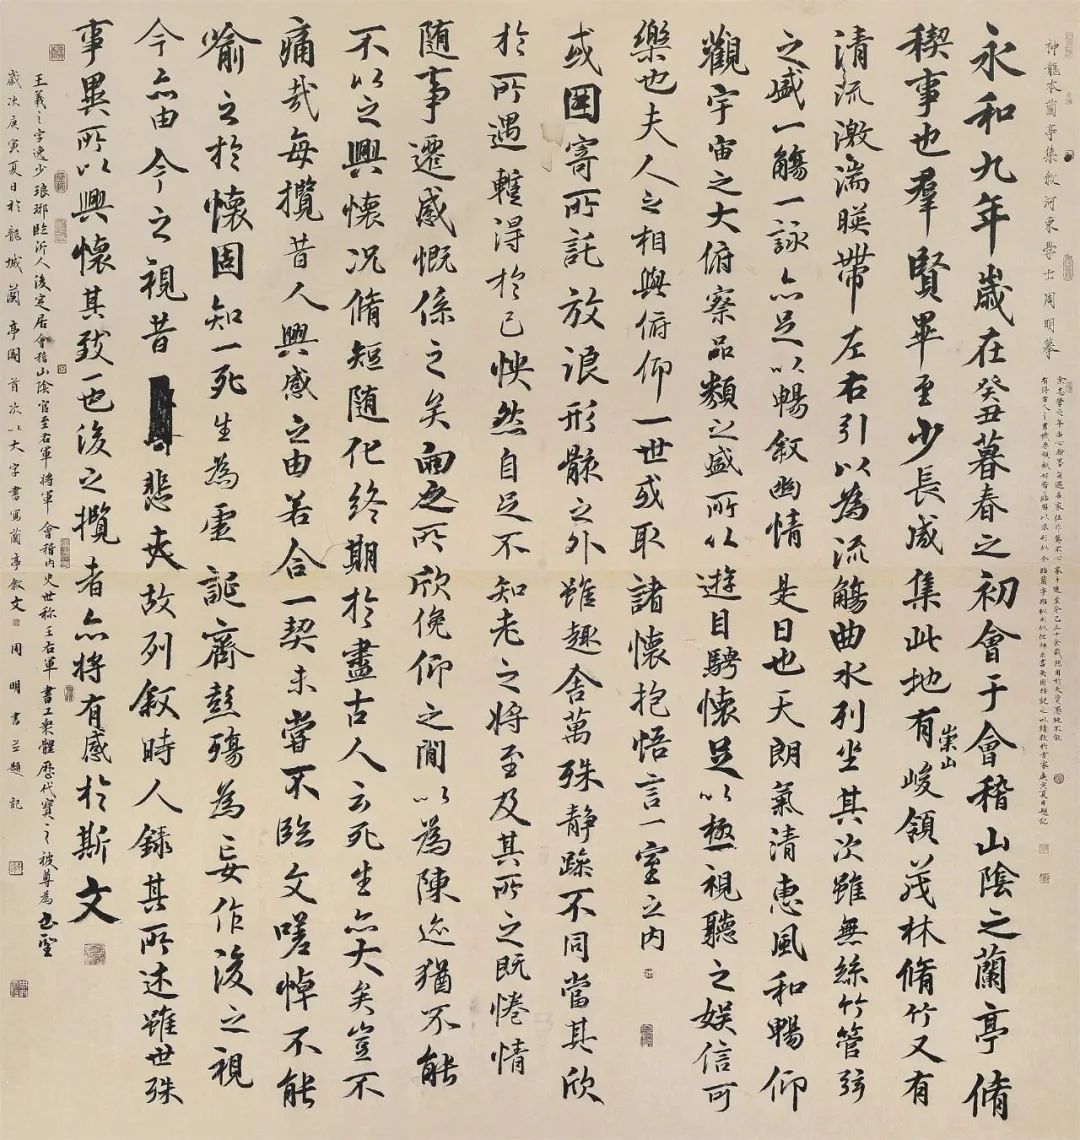 神龍本蘭亭集敘河東學士周明摹
永和九年歲在癸丑暮春之初會于會稽山陰之蘭亭脩
禊事也羣賢畢至少長咸集此地有崇山峻領茂林脩竹又有
清流激湍暎帶左右引以為流觴曲水列坐其次雖無絲竹管弦
之盛一觴一詠亦足以暢敘幽情是日也天朗氣清惠風和暢仰
觀宇宙之大俯察品類之盛所以遊目騁懷足以極視聽之娛信可
樂也夫人之相與俯仰一世或取諸懷抱悟言一室之內
或因寄所託放浪形骸之外雖趣舍萬殊靜躁不同當其欣
於所遇暫得於己怏然自足不知老之將至及其所之既惓情
隨事遷感慨係之矣向之所欣俛仰之閒以為陳迹猶不能
不以之興懷況脩短隨化終期於盡古人云死生亦大矣豈不
痛哉每攬昔人興感之由若合一契未嘗不臨文嗟悼不能
喻之於懷固知一死生為虛誕齊彭殤為妄作後之視
今亦由今之視昔悲夫故列敘時人錄其所述雖世殊
事異所以興懷其致一也後之攬者亦將有感於斯文
王羲之字逸少琅琊臨沂人後定居會稽山陰官至右軍將軍會稽內史世稱王右軍書工眾體歷代寶之被尊為書聖
歲次庚寅夏日於龍城蘭亭閣首次以大字書寫蘭亭敘文周明書並題記